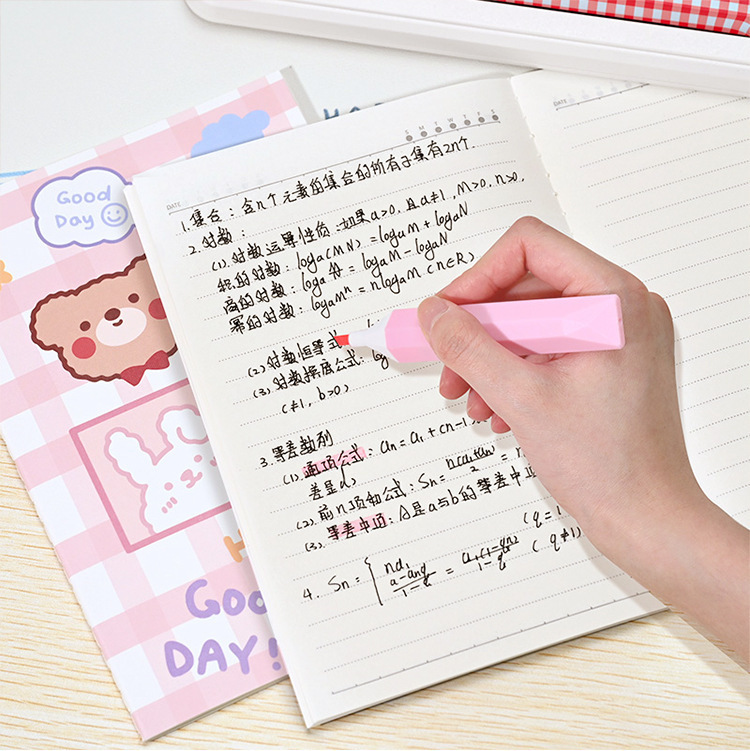 Good
Day
DATE
S M T W T F S
1. 集合：含n个元素的集合的所有子集有2n个.
2. 对数：
(1). 对数运算性质：如果a>0，且a≠1，M>0，n>0，
积的对数：loga(MN) = logaM + logaN
商的对数：loga = logaM - logaN
幂的对数：logaMⁿ = nlogaM (n∈R)
(2) 对数恒等式
(3). 对数换底公式：log
(≠1, b>0)
3. 等差数列
(1). 通项公式：an = a1 + cn-1
差是d)
(2). 前n项和公式：Sn =
(3). 等差中项：A是a与b的等差中项
(q=1
4. Sn = { na1
(q≠1)
DATE
Good
DAY!